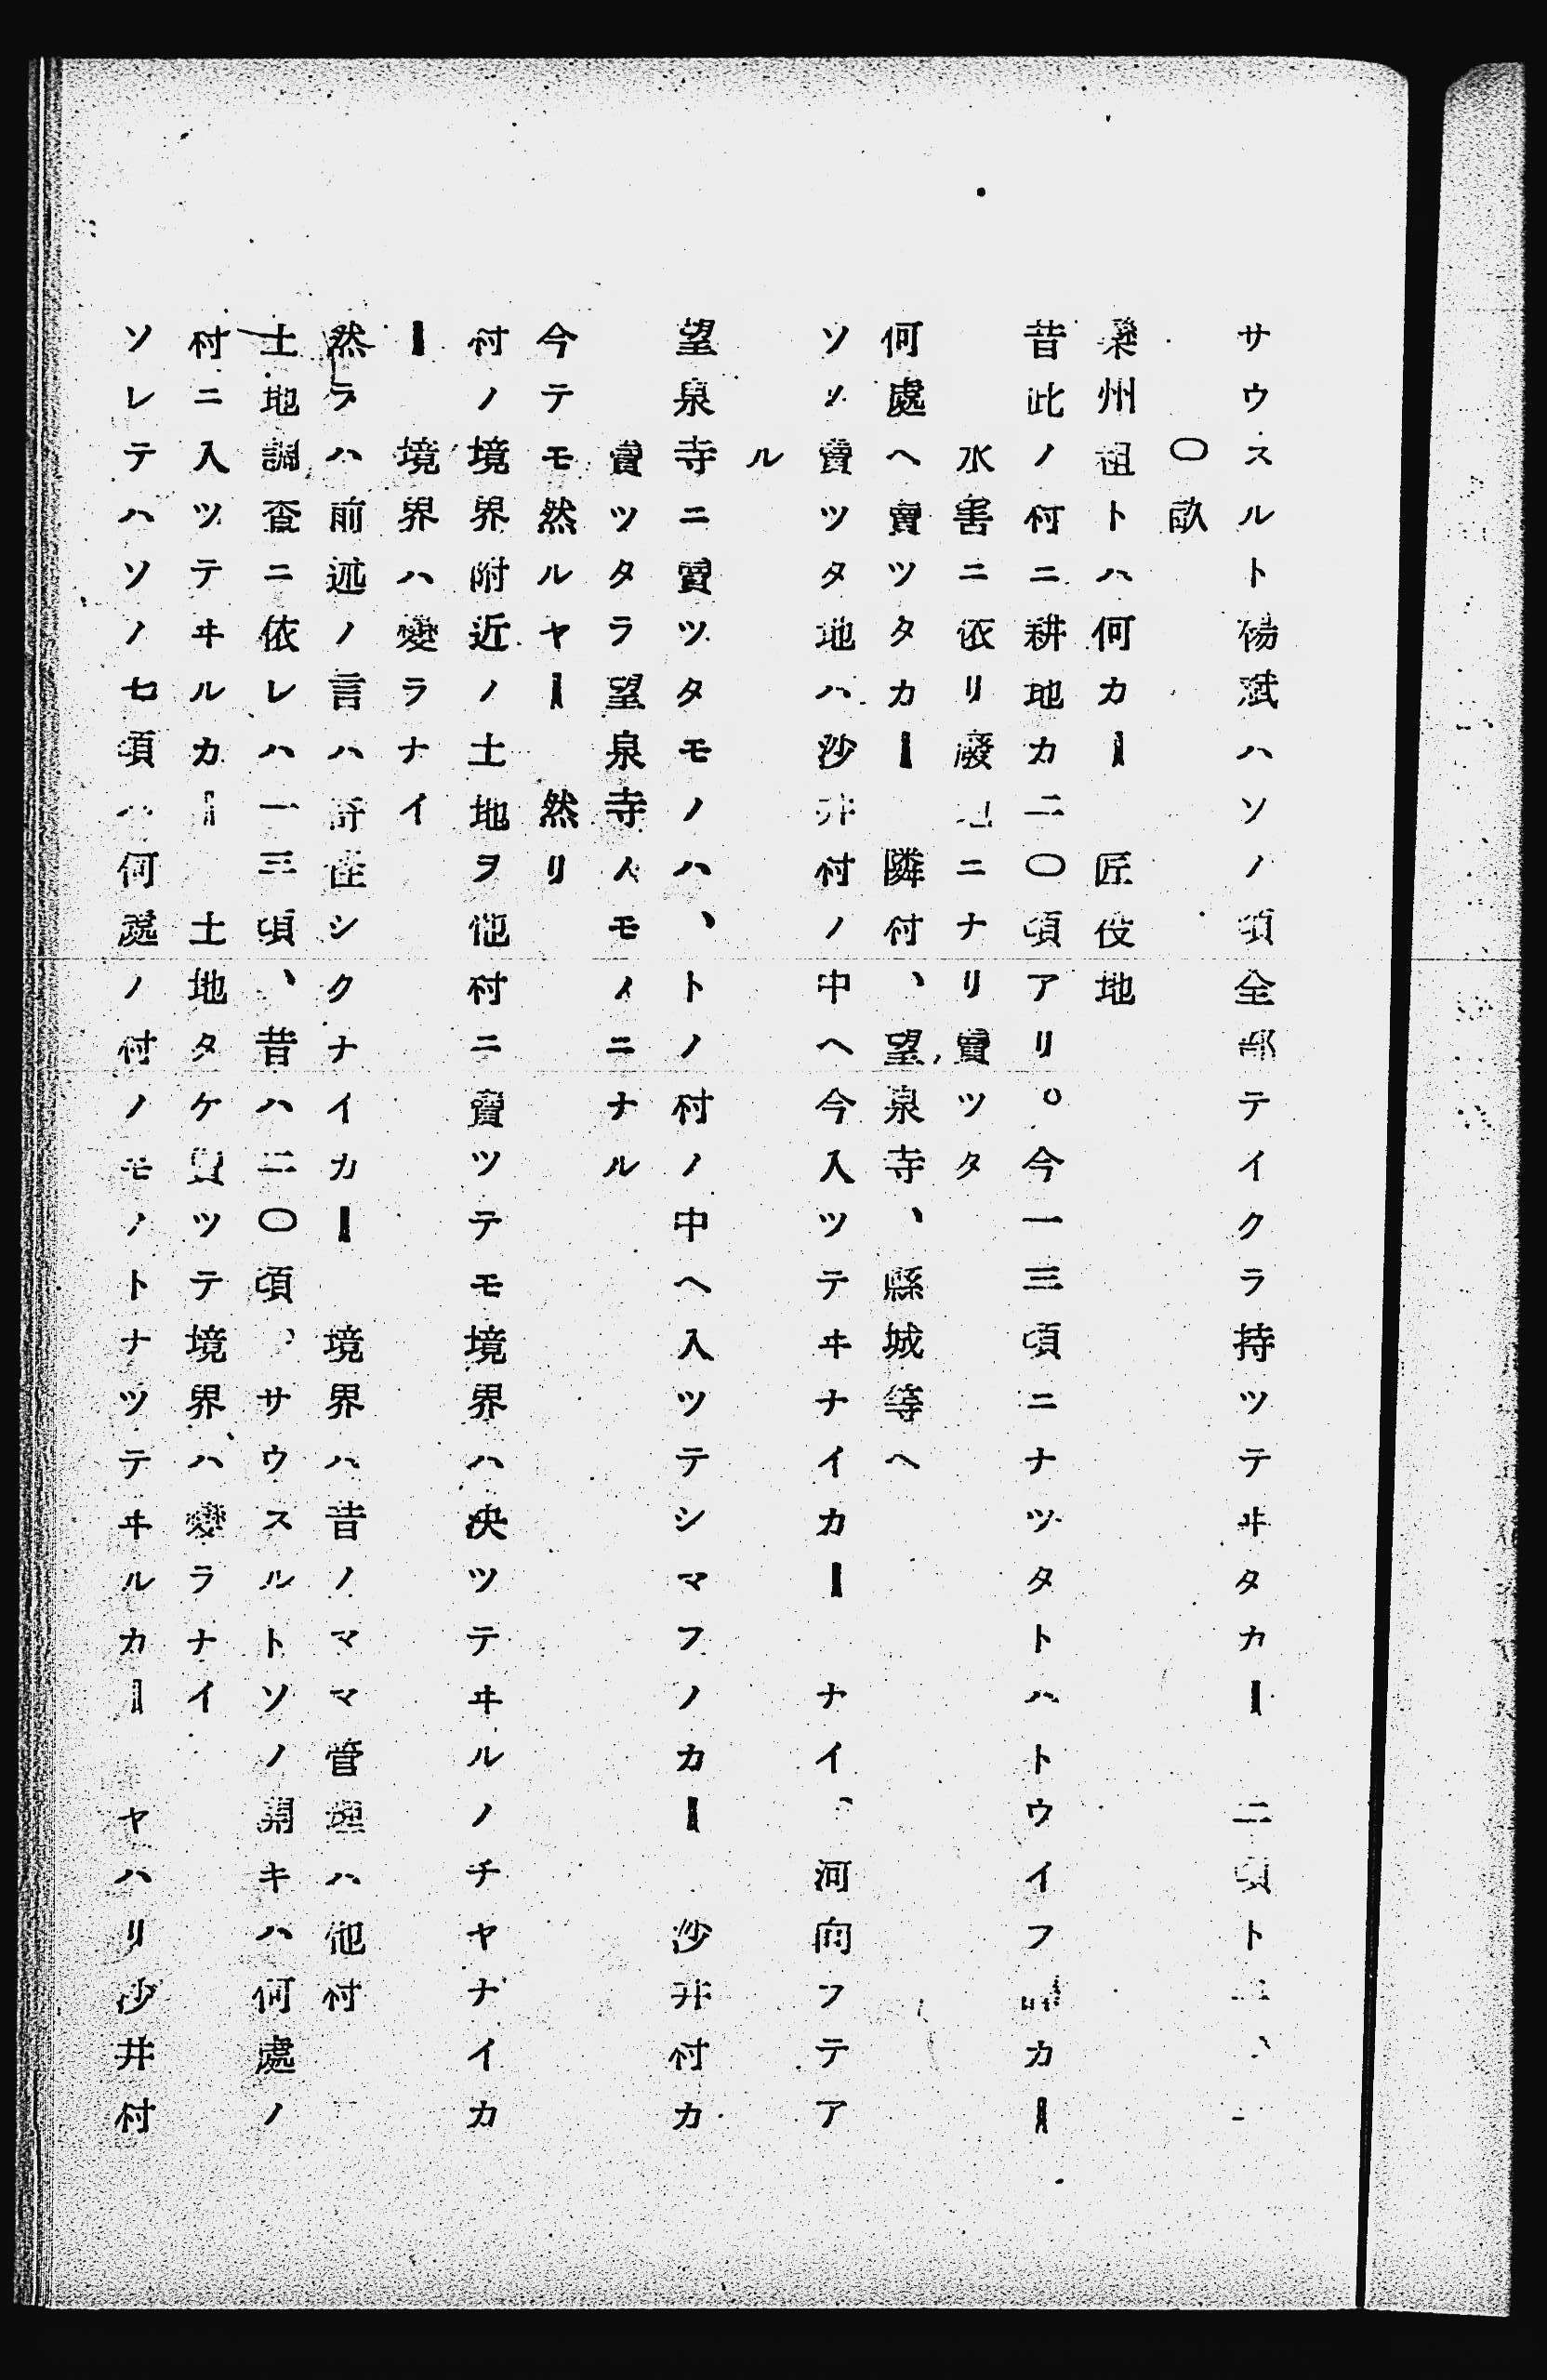 サウスルト楊斌ハソノ頃全部テイクラ持ツテヰタカー　二頃ト二、一
〇畝
樂州祖トハ何カー　匠役地
昔此ノ村ニ耕地カ二〇頃アリ。今一三頃ニナツタトハトウイフ譯カー
水害ニ依リ廢地ニナリ賣ツタ
何處ヘ賣ツタカー　隣村、望泉寺、縣城等ヘ
ソノ賣ツタ地ハ沙井村ノ中ヘ今入ツテヰナイカー　ナイ、河向フテア
ル
望泉寺ニ賣ツタモノハ、トノ村ノ中ヘ入ツテシマフノカー　沙井村カ
賣ツタラ望泉寺ノモノニナル
今テモ然ルヤー　然リ
村ノ境界附近ノ土地ヲ他村ニ賣ツテモ境界ハ決ツテヰルノチヤナイカ
ー　境界ハ變ラナイ
然ラハ前述ノ言ハ訝シクナイカー　境界ハ昔ノママ管理ハ他村
土地調査ニ依レハ一三頃、昔ハ二〇頃、サウスルトソノ開キハ何處ノ
村ニ入ツテヰルカー　土地タケ買ツテ境界ハ變ラナイ
ソレテハソノ七頃ハ何處ノ村ノモノトナツテヰルカー　ヤハリ沙井村